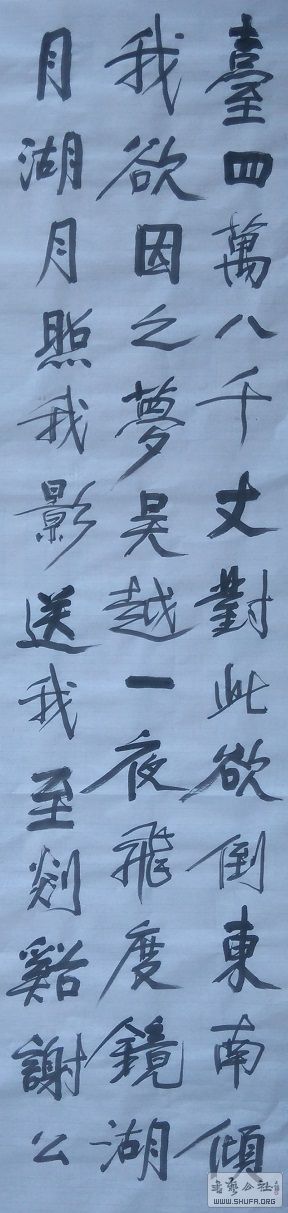 臺四萬八千丈對此欲倒東南傾
我欲因之夢吳越一夜飛度鏡湖
月湖月照我影送我至剡谿謝公
書藝公社
WWW.SHUFA.ORG